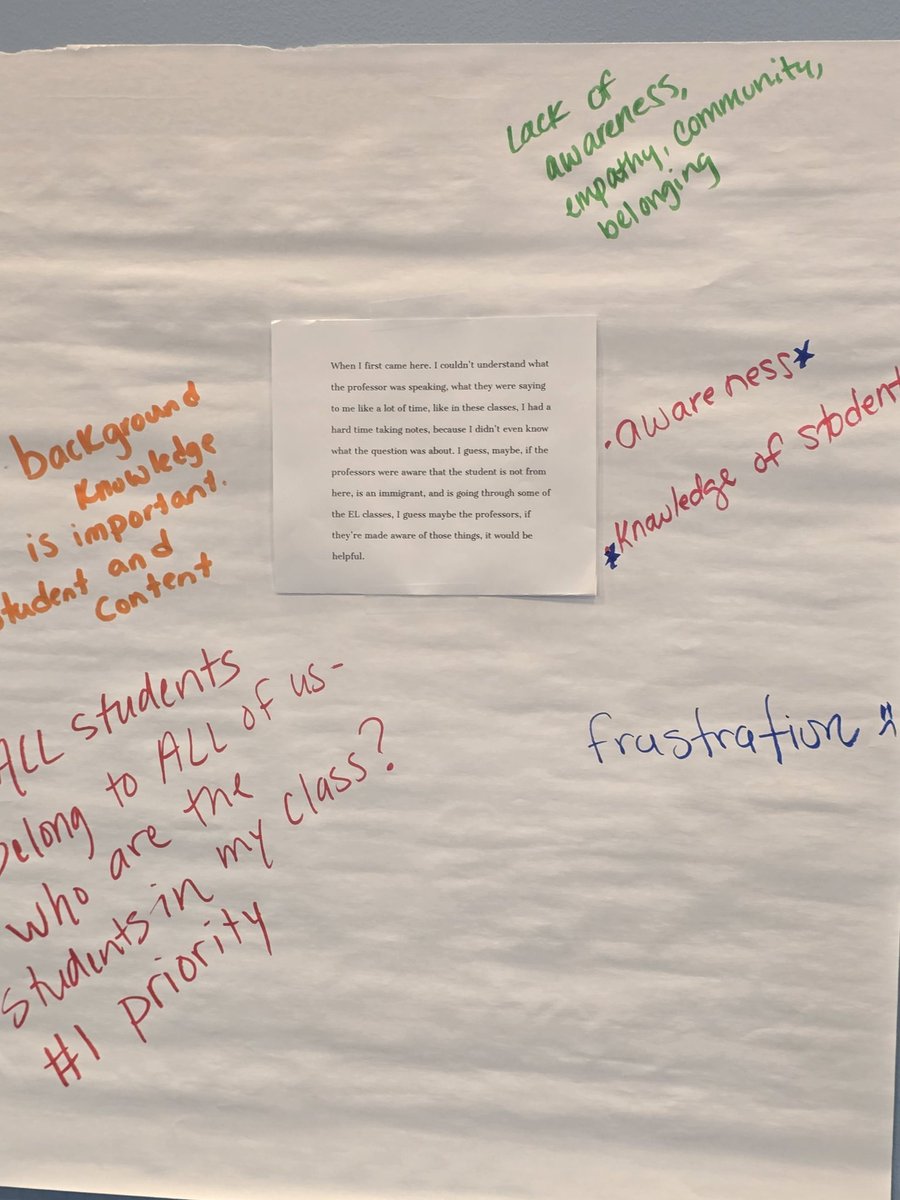 Lack of
awareness,
empathy, community,
belonging
When I first came here. I couldn't understand what
the professor was speaking, what they were saying
to me like a lot of time, like in these classes, I had a
hard time taking notes, because I didn't even know
what the question was about. I guess, maybe, if the
professors were aware that the student is not from
here, is an immigrant, and is going through some of
the EL classes, I guess maybe the professors, if
they're made aware of those things, it would be
helpful.
background
knowledge
is important.
student and
content
• awareness*
*Knowledge of student
ALL students
belong to ALL of us-
who are the
students in my class?
#1 priority
frustration